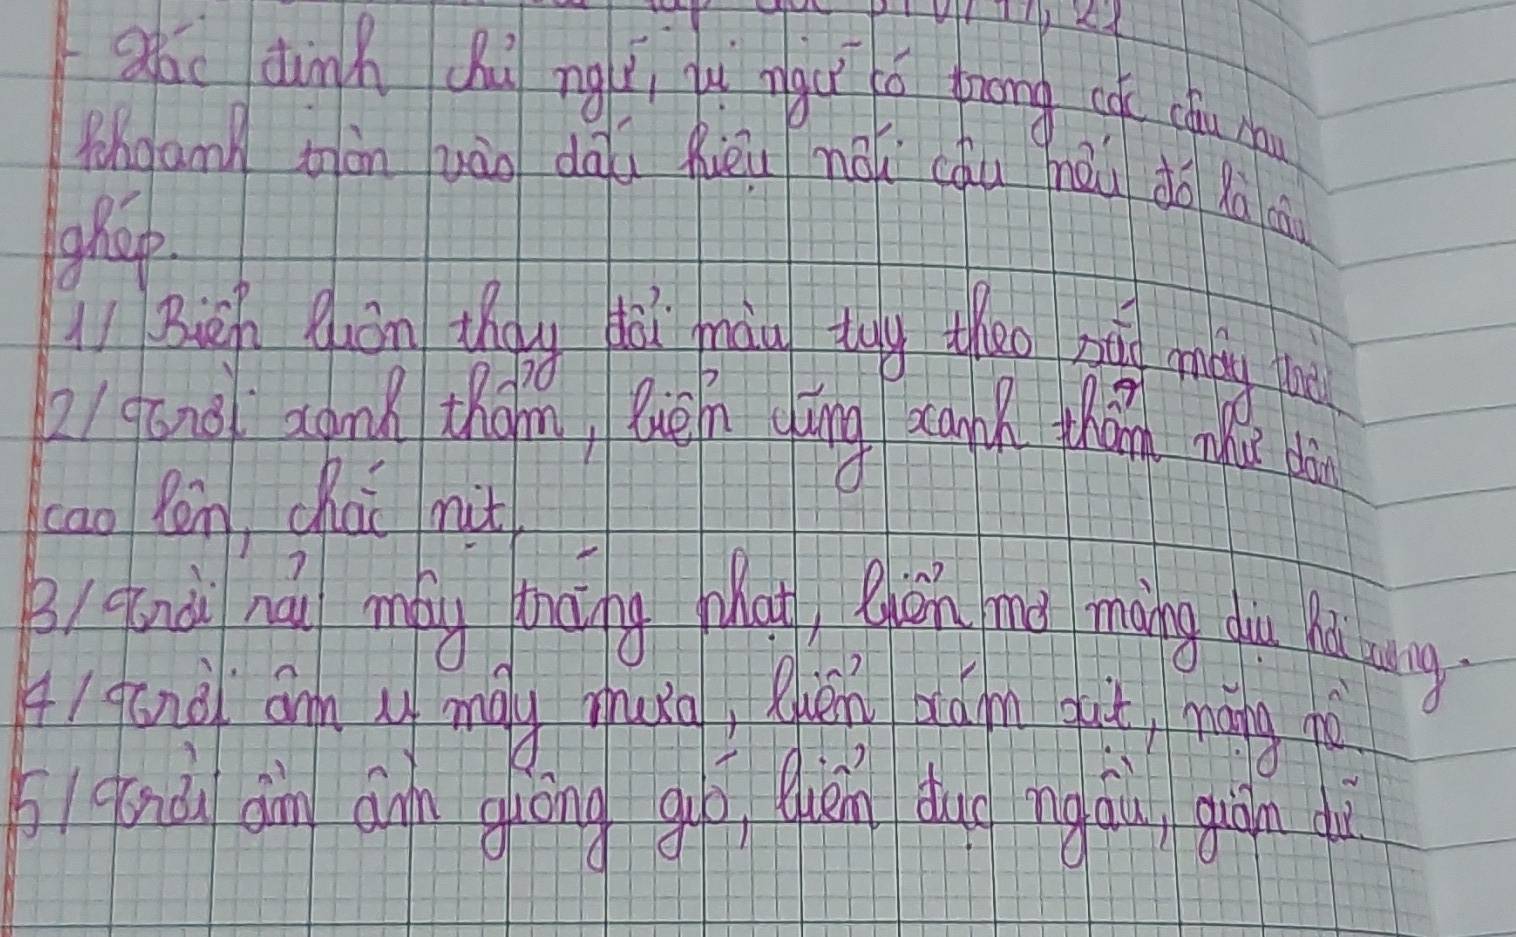 - Xác định chủ ngữ, vị ngữ có trong các câu sau
Khoanh tròn vào dấu hiệu nối câu nếu đó là câu
ghép.
1/ Biển luôn thay đổi màu tùy theo sắc mây trời
2/ Trời xanh thẳm, biển cũng xanh thẳm như dân
cao lên, chắc nịt.
3/ Trời rải mây trắng nhạt, biển mơ màng dịu hơi sương.
4/ Trời âm u mây mưa, biển xám xịt, nặng nề
5/ Trời ầm ầm giông gió, biển đục ngầu, giận dữ.